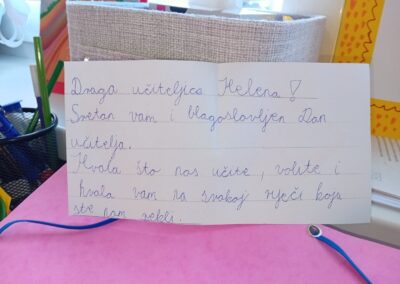 Draga učiteljica Helena!
Sretan vam i blagoslovljen Dan
učitelja.
Hvala što nas učite, volite i
hvala vam na svakoj riječi koju
ste nam rekli.